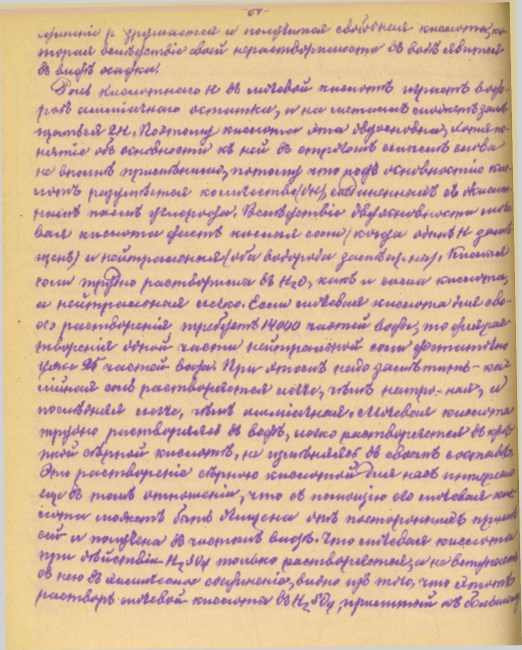 разрушается и получится свободная кислота, ко-
торая вследствіе своей нерастворимости въ водѣ явится
въ видѣ осадка.
Роль кислотнаго H въ мочевой кислотѣ играетъ водо-
родъ амміачнаго остатка, и на металлъ можетъ замѣ-
щаться 2H. Поэтому кислота эта двуосновная, хотя по-
нятіе объ основности къ ней въ строгомъ смыслѣ слова
не вполнѣ примѣнимо, потому что подъ основностью кис-
лотъ разумѣется количество (OH), соединенныхъ съ
углерода. Вслѣдствіе двуосновности моче-
вая кислота даетъ кислыя соли (когда одинъ H замѣ-
щенъ) и нейтральныя (оба водорода замѣщены). Кислыя
соли трудно растворимы въ H₂O, какъ и сама кислота,
а нейтральныя легко. Если мочевая кислота для сво-
его растворенія требуетъ 14000 частей воды, то для рас-
творенія одной части нейтральной соли достаточно
уже 95 частей воды. При этомъ надо замѣтить – ка-
лійная соль растворяется легче, чѣмъ натро-ная, и
послѣдняя легче, чѣмъ амміачная. Мочевая кислота
трудно растворяясь въ водѣ, легко растворяется въ крѣп-
кой сѣрной кислотѣ, не измѣняясь въ своемъ составѣ.
Это раствореніе сѣрною кислотой для насъ интересно
еще въ томъ отношеніи, что съ помощію его мочевая кис-
лота можетъ быть очищена отъ постороннихъ примѣ-
сей и получена въ чистомъ видѣ. Что мочевая кислота
при дѣйствіи H₂SO₄ только растворяется, а не вступаетъ
съ нею въ химическое соединеніе, видно изъ того, что этотъ
растворъ мочевой кислоты въ H₂SO₄, прилитый къ большому